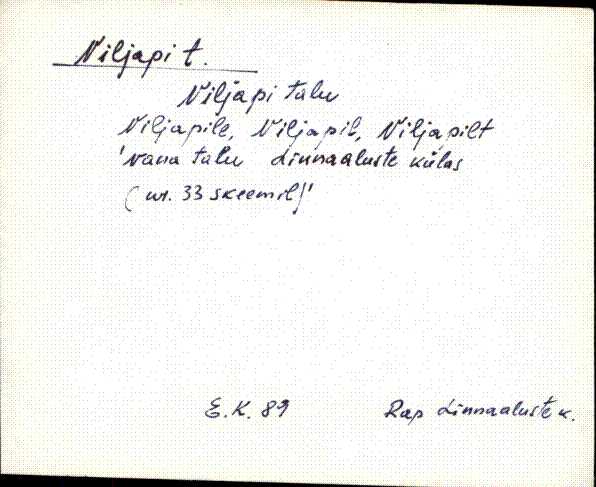 Niljapi t.
Niljapi talu
Niljapile, Niljapil, Niljapilt
'vana talu Linnaaluste külas
(nr. 33 skeemil)'
E.K. 89 Rap Linnaaluste k.